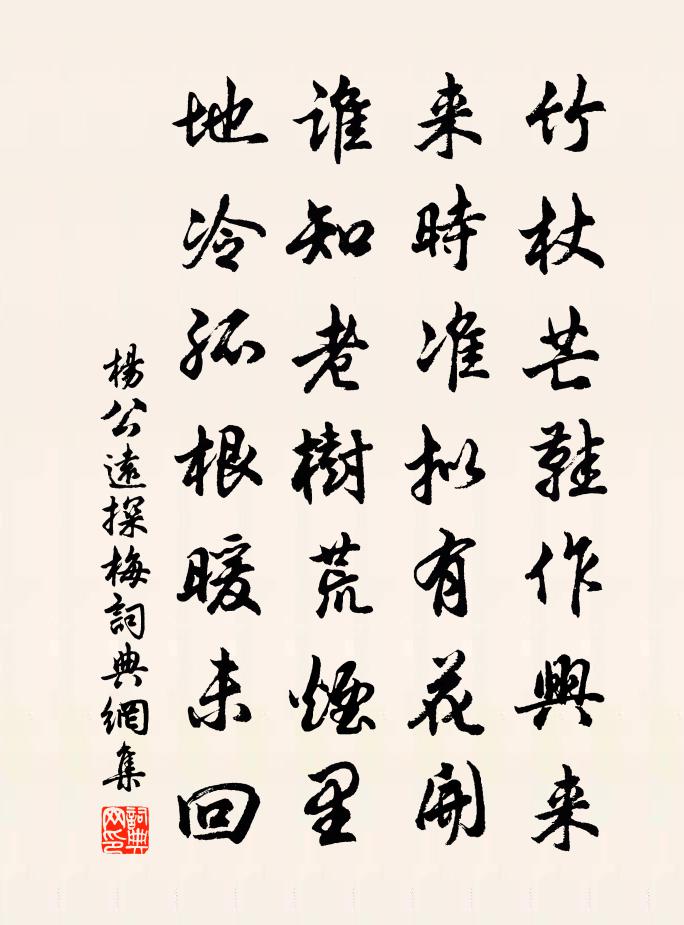 竹杖芒鞋作興来
来時准拟有花開
谁知老樹荒煙里
地冷孤根暖未回
楊公遠探梅詞典網集
詞典
网印